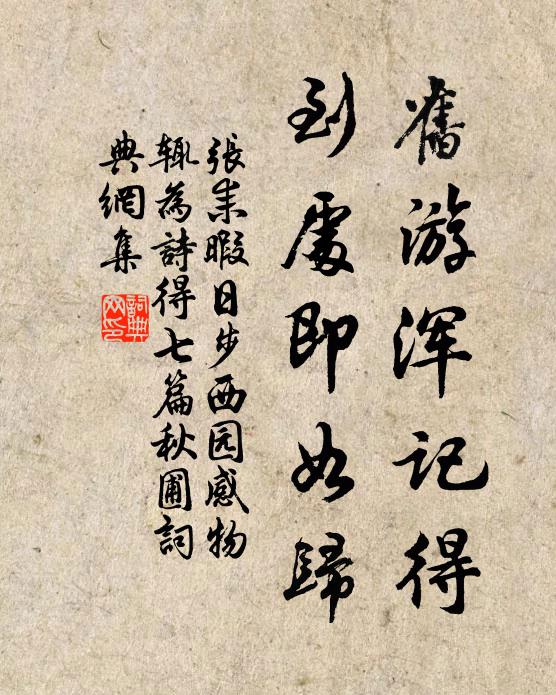 舊游浑記得
到處即如歸
張耒暇日步西园感物
輒為詩得七篇秋圃詞
典網集
詞典
网印